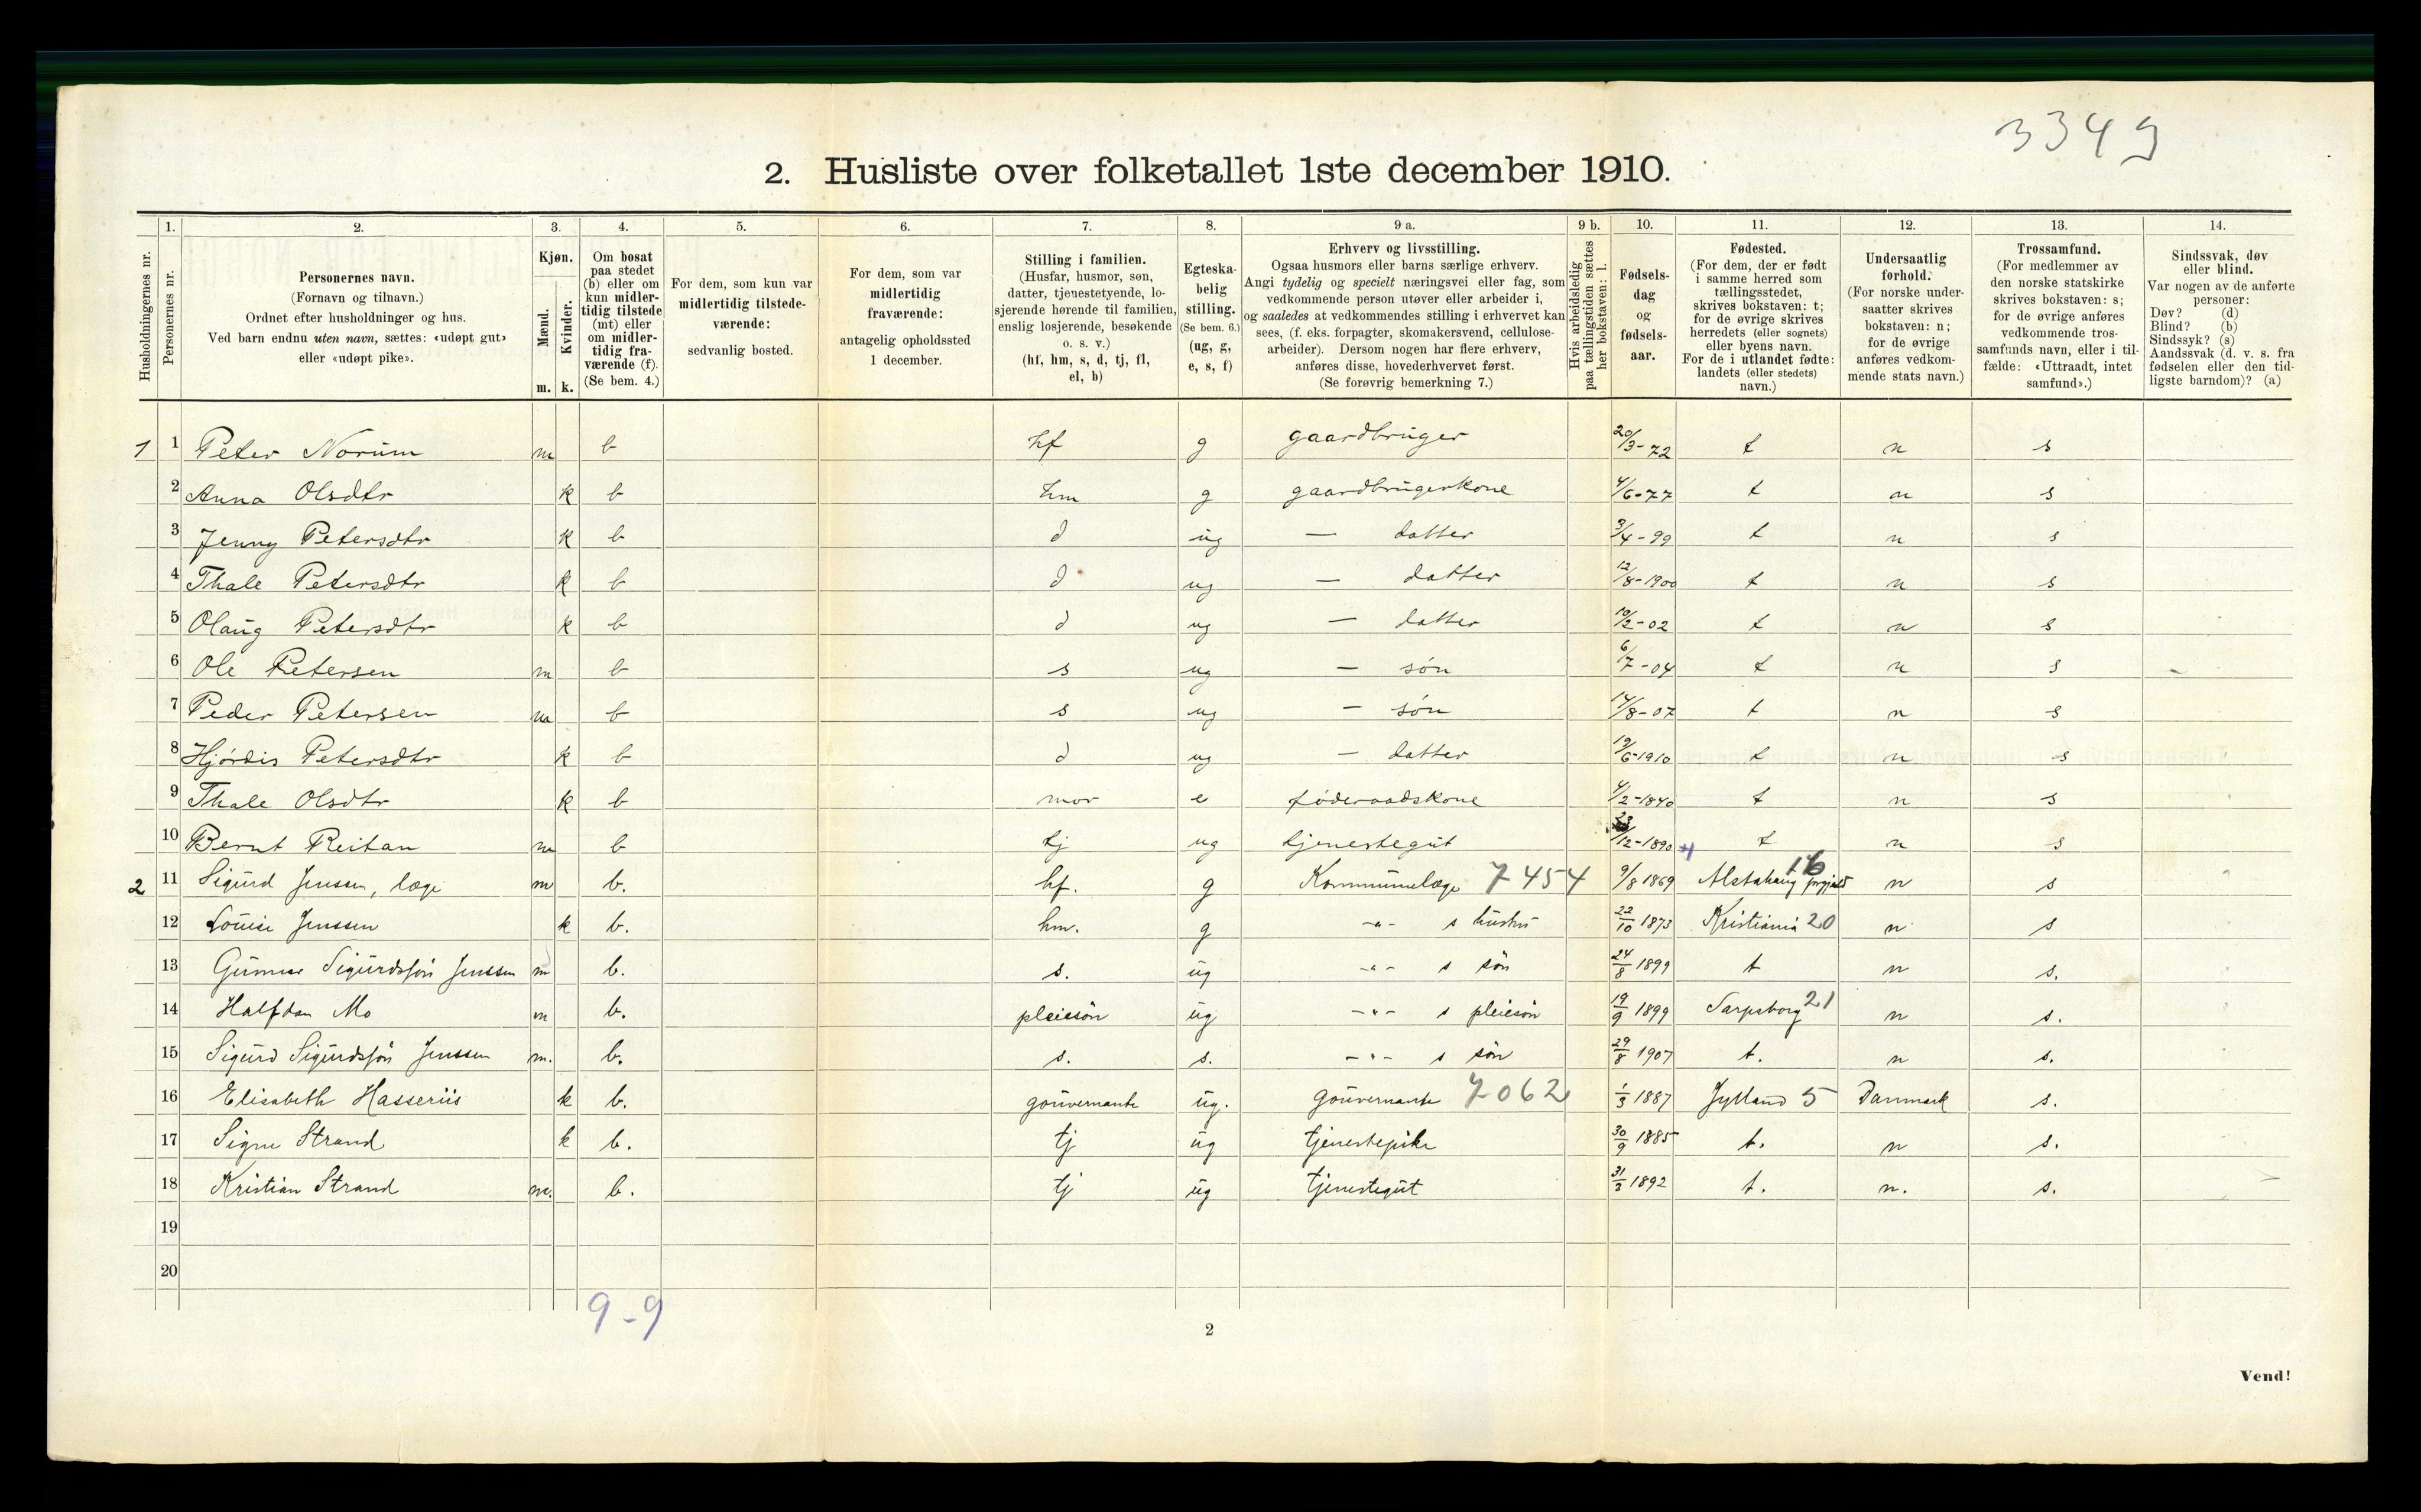 3349
2. Husliste over folketallet 1ste december 1910.
Husholdningernes nr.
1. Personernes nr.
2. Personernes navn.
(Fornavn og tilnavn.)
Ordnet efter husholdninger og hus.
Ved barn endnu uten navn, sættes: «udøpt gut»
eller «udøpt pike».
3. Kjøn.
Mænd. Kvinder.
m. k.
4. Om bosat
paa stedet
(b) eller om
kun midler-
tidig tilstede
(mt) eller
om midler-
tidig fra-
værende (f).
(Se bem. 4.)
5. For dem, som kun var
midlertidig tilstede-
værende:
sedvanlig bosted.
6. For dem, som var
midlertidig
fraværende:
antagelig opholdssted
1 december.
7. Stilling i familien.
(Husfar, husmor, søn,
datter, tjenestetyende, lo-
sjerende hørende til familien,
enslig losjerende, besøkende
o. s. v.)
(hf, hm, s, d, tj, fl,
el, b)
8. Egteska-
belig
stilling.
(Se bem. 6.)
(ug, g,
e, s, f)
9 a. Erhverv og livsstilling.
Ogsaa husmors eller barns særlige erhverv.
Angi tydelig og specielt næringsvei eller fag, som
vedkommende person utøver eller arbeider i,
og saaledes at vedkommendes stilling i erhvervet kan
sees, (f. eks. forpagter, skomakersvend, cellulose-
arbeider). Dersom nogen har flere erhverv,
anføres disse, hovederhvervet først.
(Se forøvrig bemerkning 7.)
9 b. Hvis arbeidsledig
paa tællingstiden sættes
her bokstaven: l.
10. Fødsels-
dag
og
fødsels-
aar.
11. Fødested.
(For dem, der er født
i samme herred som
tællingsstedet,
skrives bokstaven: t;
for de øvrige skrives
herredets (eller sognets)
eller byens navn.
For de i utlandet fødte:
landets (eller stedets)
navn.)
12. Undersaatlig
forhold.
(For norske under-
saatter skrives
bokstaven: n;
for de øvrige
anføres vedkom-
mende stats navn.)
13. Trossamfund.
(For medlemmer av
den norske statskirke
skrives bokstaven: s;
for de øvrige anføres
vedkommende tros-
samfunds navn, eller i til-
fælde: «Uttraadt, intet
samfund».)
14. Sindssvak, døv
eller blind.
Var nogen av de anførte
personer:
Døv? (d)
Blind? (b)
Sindssyk? (s)
Aandssvak (d. v. s. fra
fødselen eller den tid-
ligste barndom)? (a)
1 1 Peter Norum m b hf g gaardbruger 20/3-72 t n s
2 Anna Olsdtr k b hm g gaardbrugerkone 4/6-77 t n s
3 Jenny Petersdtr k b d ug — datter 3/4-99 t n s
4 Thale Petersdtr k b d ug — datter 12/8-1900 t n s
5 Olaug Petersdtr k b d ug — datter 10/2-02 t n s
6 Ole Petersen m b s ug — søn 6/7-04 t n s
7 Peder Petersen m b s ug — søn 14/8-07 t n s
8 Hjørdis Petersdtr k b d ug — datter 19/6-1910 t n s
9 Thale Olsdtr k b mor e føderaadskone 4/2-1840 t n s
10 Bernt Reitan m b tj ug tjenestegut 23/12-1890 t n s
2 11 Sigurd Jenssen, læge m b. hf. g Kommunelæge 7454 9/8 1869 Alstahaug 16 n s
12 Louise Jenssen k b. hm. g -"- s hustru 22/10 1873 Kristiania 20 n s
13 Gunnar Sigurdssøn Jenssen m b. s. ug -"- s søn 24/8 1899 t n s.
14 Halfdan Mo m b. pleiesøn ug -"- s pleiesøn 19/9 1899 Sarpsborg 21 n s.
15 Sigurd Sigurdssøn Jenssen m. b. s. s. -"- s søn 29/8 1907 t. n s.
16 Elisabeth Hasseriis k b. gouvernante ug. gouvernante 7062 1/3 1887 Jylland 5 Danmark s.
17 Signe Strand k b. tj ug tjenestepike 30/9 1885 t. n s.
18 Kristian Strand m. b. tj ug tjenestegut 31/3 1892 t. n. s.
19
20
9-9
2
Vend!